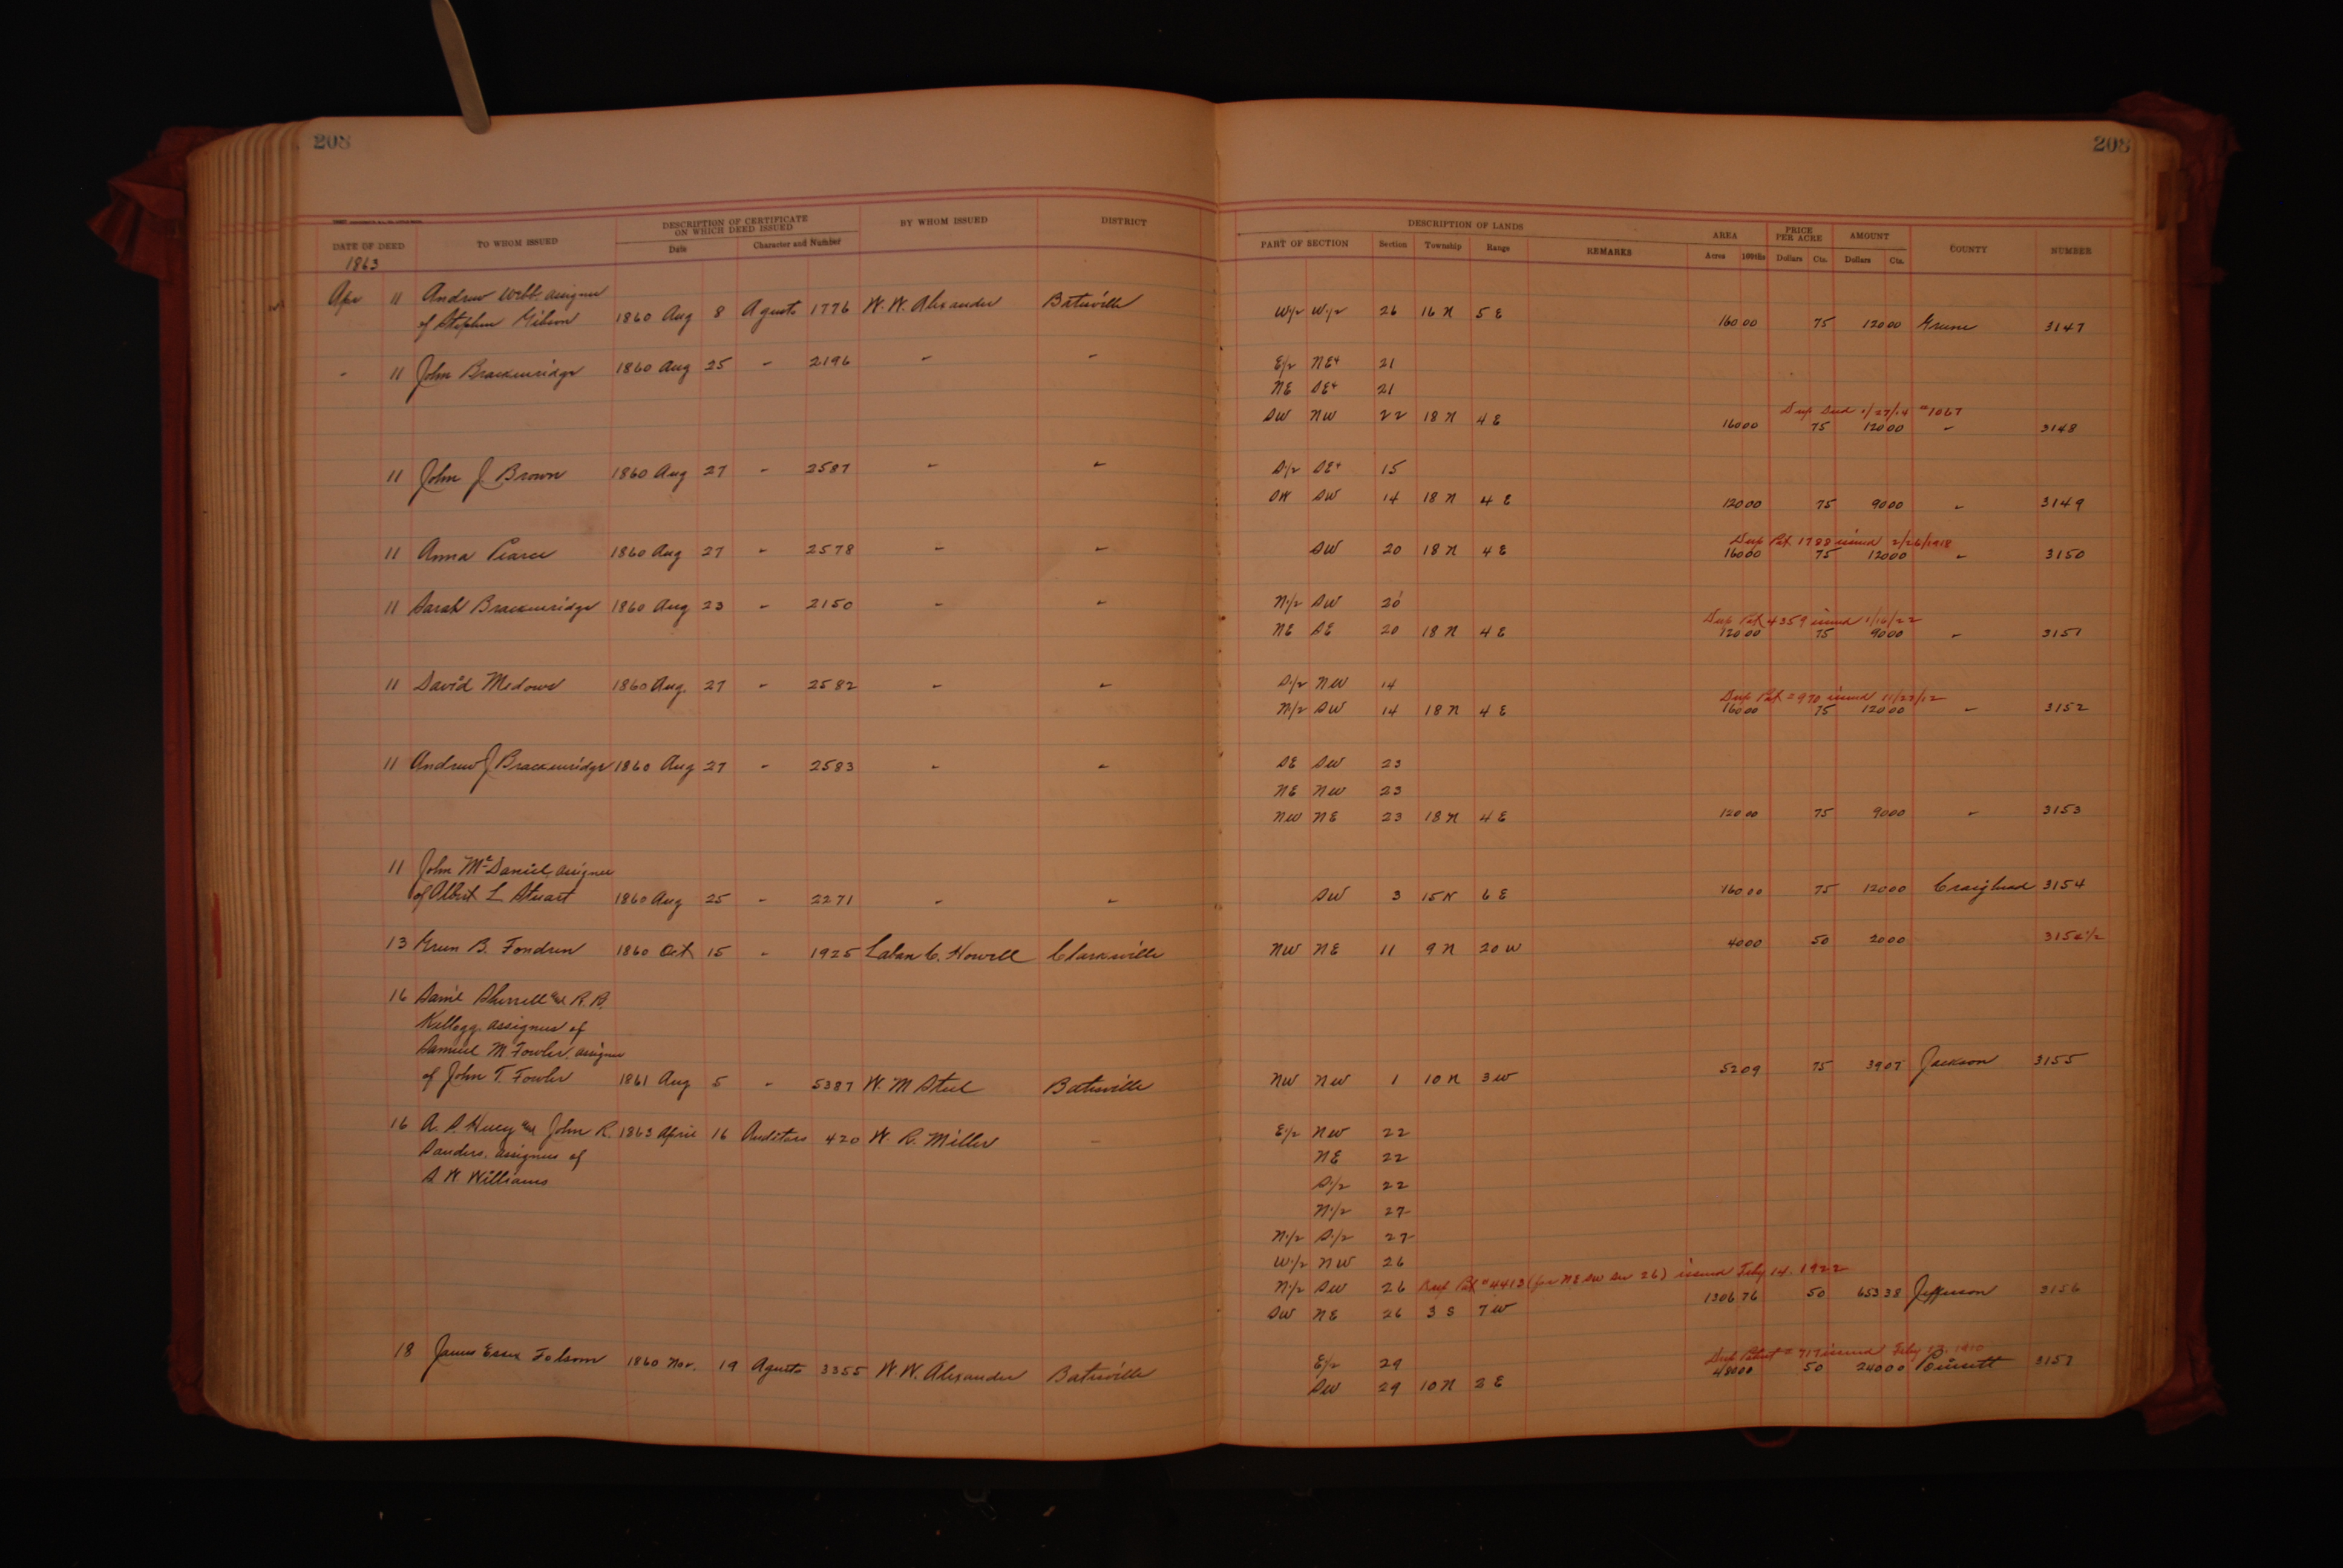 208 208
DATE OF DEED TO WHOM ISSUED DESCRIPTION OF CERTIFICATE ON WHICH DEED ISSUED BY WHOM ISSUED DISTRICT DESCRIPTION OF LANDS AREA PRICE PER ACRE AMOUNT COUNTY NUMBER
Date Character and Number PART OF SECTION Section Township Range REMARKS Acres 100ths Dollars Cts. Dollars Cts.
1863
Apr 11 Andrew Webb, assignee
of Stephen Gibson 1860 Aug 8 Agents 1776 W. W. Alexander Batesville W1/2 W1/2 26 16 N 5 E 160 00 75 120 00 Greene 3147
" 11 John Brackenridge 1860 Aug 25 " 2196 " " E/2 NE4 21
NE SE4 21
Dup Deed 1/27/14 #1067
SW NW 22 18 N 4 E 160 00 75 120 00 " 3148
11 John J. Brown 1860 Aug 27 " 2587 " " S1/2 SE4 15
SW SW 14 18 N 4 E 120 00 75 90 00 " 3149
Dup Pat 1788 issued 2/26/1918
11 Anna Pearce 1860 Aug 27 " 2578 " " SW 20 18 N 4 E 160 00 75 120 00 " 3150
11 Sarah Brackenridge 1860 Aug 23 " 2150 " " N1/2 SW 20
Dup Pat 4359 issued 1/16/22
NE SE 20 18 N 4 E 120 00 75 90 00 " 3151
11 David Medows 1860 Aug. 27 " 2582 " " S1/2 NW 14
Dup Pat #970 issued 11/22/12
N1/2 SW 14 18 N 4 E 160 00 75 120 00 " 3152
11 Andrew J Brackenridge 1860 Aug 27 " 2583 " " SE SW 23
NE NW 23
NW NE 23 18 N 4 E 120 00 75 90 00 " 3153
11 John McDaniel, assignee
of Albert L Stuart 1860 Aug 25 " 2271 " " SW 3 15 N 6 E 160 00 75 120 00 Craighead 3154
13 Green B. Fondren 1860 Oct 15 " 1925 Laban C. Howell Clarksville NW NE 11 9 N 20 W 40 00 50 20 00 3154 1/2
16 Saml Sherrell and R. S.
Kellogg, assignees of
Samuel M Fowler, assignee
of John T. Fowler 1861 Aug 5 " 5387 W. M Steel Batesville NW NW 1 10 N 3 W 52 09 75 39 07 Jackson 3155
16 A. S. Huey and John R. 1863 April 16 Auditors 420 W. R. Miller " E1/2 NW 22
Sanders, assignees of NE 22
S W Williams S1/2 22
N1/2 27
N1/2 S1/2 27
W1/2 NW 26
N1/2 SW 26 Dup Pat #4413 (for NE SW Sec 26) issued Feby 14, 1922
SW NE 26 3 S 7 W 1306 76 50 653 38 Jefferson 3156
Dup Patent #717 issued Feby 12, 1910
18 James Essex Folsom 1860 Nov. 19 Agents 3355 W. W. Alexander Batesville E/2 29 480 00 50 240 00 Poinsett 3157
SW 29 10 N 2 E